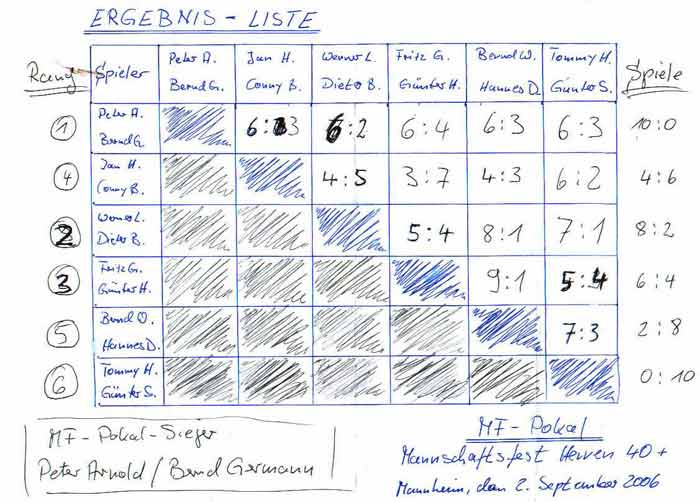 ERGEBNIS - LISTE
Rang Spieler Peter A. Jan H. Werner L. Fritz G. Bernd W. Tommy H. Spiele
Bernd G. Conny B. Dieter B. Günter H. Hannes D. Günter S.
1 Peter A. 6:3 6:2 6:4 6:3 6:3 10:0
Bernd G.
4 Jan H. 4:5 3:7 4:3 6:2 4:6
Conny B.
2 Werner L. 5:4 8:1 7:1 8:2
Dieter B.
3 Fritz G. 9:1 5:4 6:4
Günter H.
5 Bernd 7:3 2:8
Hannes D.
6 Tommy H. 0:10
Günter S.
MF-Pokal-Sieger
Peter Arnold / Bernd Germann
MF-Pokal
Mannschaftsfest Herren 40+
Mannheim, den 2. September 2006